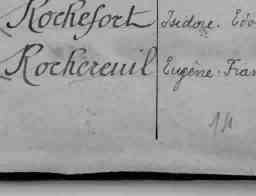 Rochefort Isidore. Edo
Rochereuil Eugène. Fran